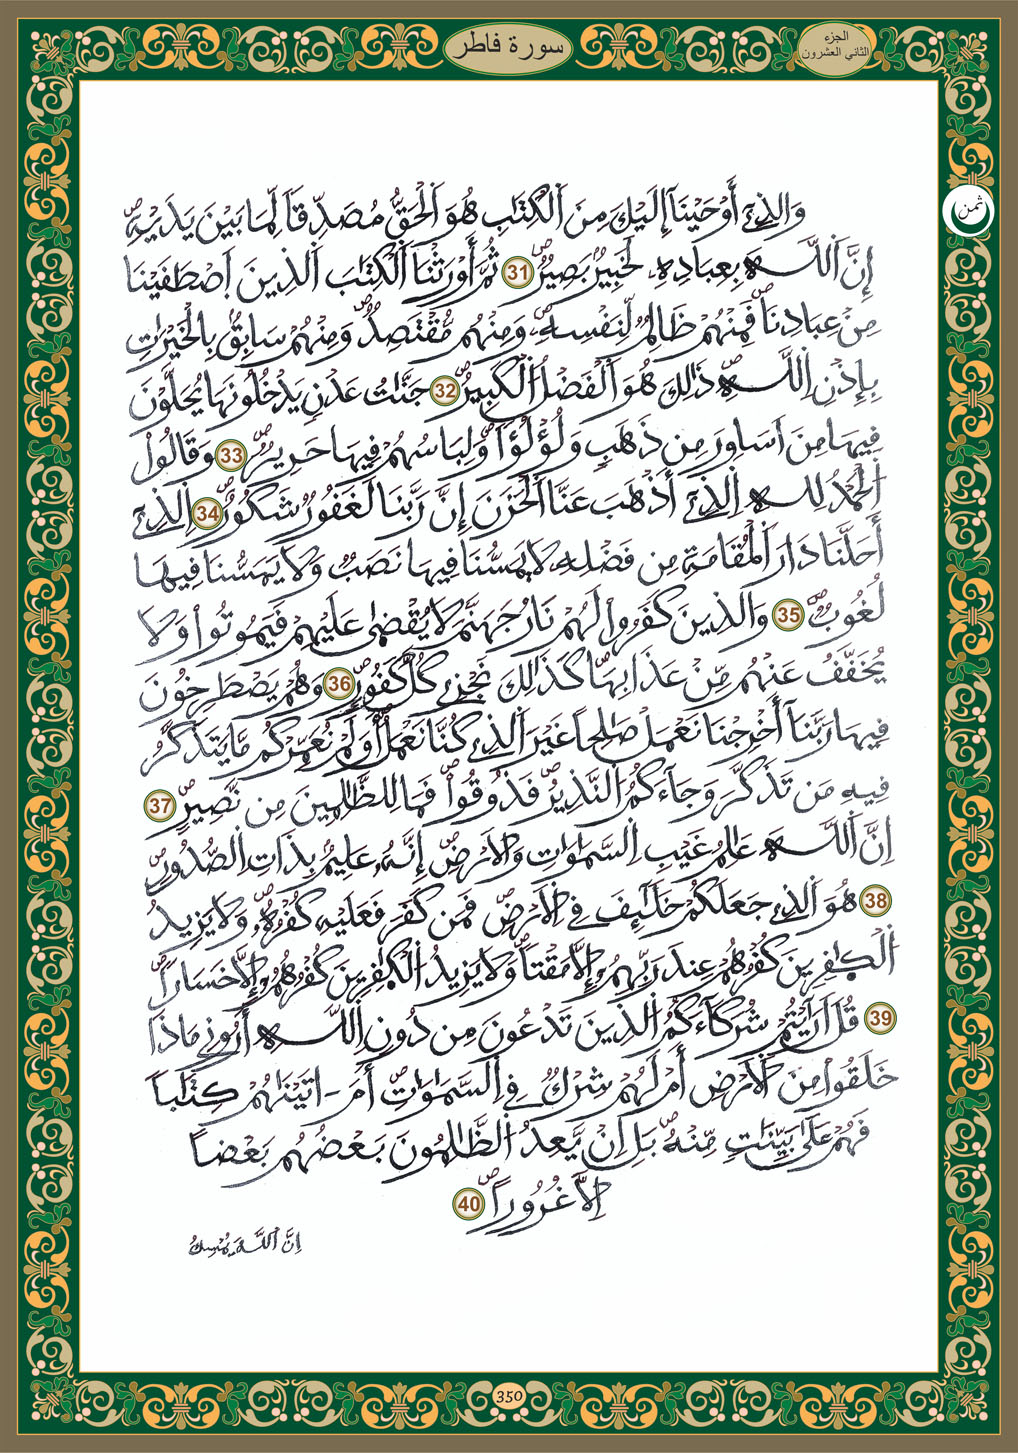 سورة فاطر
الجزء
الثاني العشرون
ثمن
وَالذِے أَوْحَيْنَآ إِلَيْكَ مِنَ اَلْكِتَٰبِ هُوَ اَلْحَقُّ مُصَدِّقاٗ لِّمَا بَيْنَ يَدَيْهِۖ
إِنَّ اَللَّهَ بِعِبَادِهِۦ لَخَبِيرُۢ بَصِيرٞۖ 31 ثُمَّ أَوْرَثْنَا اَلْكِتَٰبَ اَلذِينَ اَصْطَفَيْنَا
مِنْ عِبَادِنَاۖ فَمِنْهُمْ ظَالِمٞ لِّنَفْسِهِۦۖ وَمِنْهُم مُّقْتَصِدٞۖ وَمِنْهُمْ سَابِقُۢ بِالْخَيْرَٰتِ
بِإِذْنِ اِللَّهِۖ ذَٰلِكَ هُوَ اَلْفَضْلُ اُلْكَبِيرُۖ 32 جَنَّٰتُ عَدْنٖ يَدْخُلُونَهَا يُحَلَّوْنَ
فِيهَا مِنَ اَسَاوِرَ مِن ذَهَبٖ وَلُؤْلُؤاٗۖ وَلِبَاسُهُمْ فِيهَا حَرِيرٞۖ 33 وَقَالُواْ
اُلْحَمْدُ لِلهِ اِلذِے أَذْهَبَ عَنَّا اَلْحَزَنَ إِنَّ رَبَّنَا لَغَفُورٞ شَكُورٌۖ 34 اِلذِے
أَحَلَّنَا دَارَ اَلْمُقَامَةِ مِن فَضْلِهِۦ لَا يَمَسُّنَا فِيهَا نَصَبٞ وَلَا يَمَسُّنَا فِيهَا
لُغُوبٞۖ 35 وَالذِينَ كَفَرُواْ لَهُمْ نَارُ جَهَنَّمَ لَا يُقْض۪ىٰ عَلَيْهِمْ فَيَمُوتُواْ وَلَا
يُخَفَّفُ عَنْهُم مِّنْ عَذَابِهَاۖ كَذَٰلِكَ نَجْزِے كُلَّ كَفُورٖۖ 36 وَهُمْ يَصْطَرِخُونَ
فِيهَا رَبَّنَآ أَخْرِجْنَا نَعْمَلْ صَٰلِحاً غَيْرَ اَلذِے كُنَّا نَعْمَلُۖ أَوَلَمْ نُعَمِّرْكُم مَّا يَتَذَكَّرُ
فِيهِ مَن تَذَكَّرَ وَجَآءَكُمُ اُلنَّذِيرُۖ فَذُوقُواْۖ فَمَا لِلظَّٰلِمِينَ مِن نَّصِيرٍۖ 37
إِنَّ اَللَّهَ عَٰلِمُ غَيْبِ اِلسَّمَٰوَٰتِ وَالَارْضِۖ إِنَّهُۥ عَلِيمُۢ بِذَاتِ اِلصُّدُورِۖ
38 هُوَ اَلذِے جَعَلَكُمْ خَلَٰٓئِفَ فِے اِلَارْضِۖ فَمَن كَفَرَ فَعَلَيْهِ كُفْرُهُۥۖ وَلَا يَزِيدُ
اُلْكٰ۪فِرِينَ كُفْرُهُمْ عِندَ رَبِّهِمُۥٓ إِلَّا مَقْتاٗۖ وَلَا يَزِيدُ اُلْكٰ۪فِرِينَ كُفْرُهُمُۥٓ إِلَّا خَسَاراٗۖ
39 قُلَ اَرَٰيْتُمْ شُرَكَآءَكُمُ اُلذِينَ تَدْعُونَ مِن دُونِ اِللَّهِ أَرُونِے مَاذَا
خَلَقُواْ مِنَ اَلَارْضِ أَمْ لَهُمْ شِرْكٞ فِے اِلسَّمَٰوَٰتِۖ أَمَ اٰتَيْنَٰهُمْ كِتَٰباٗ
فَهُمْ عَلَىٰ بَيِّنَٰتٖ مِّنْهُۖ بَلِ اِنْ يَّعِدُ اُلظَّٰلِمُونَ بَعْضُهُم بَعْضاً
اِلَّا غُرُوراًۖ 40
اِنَّ اَللَّهَ يُمْسِكُ
350